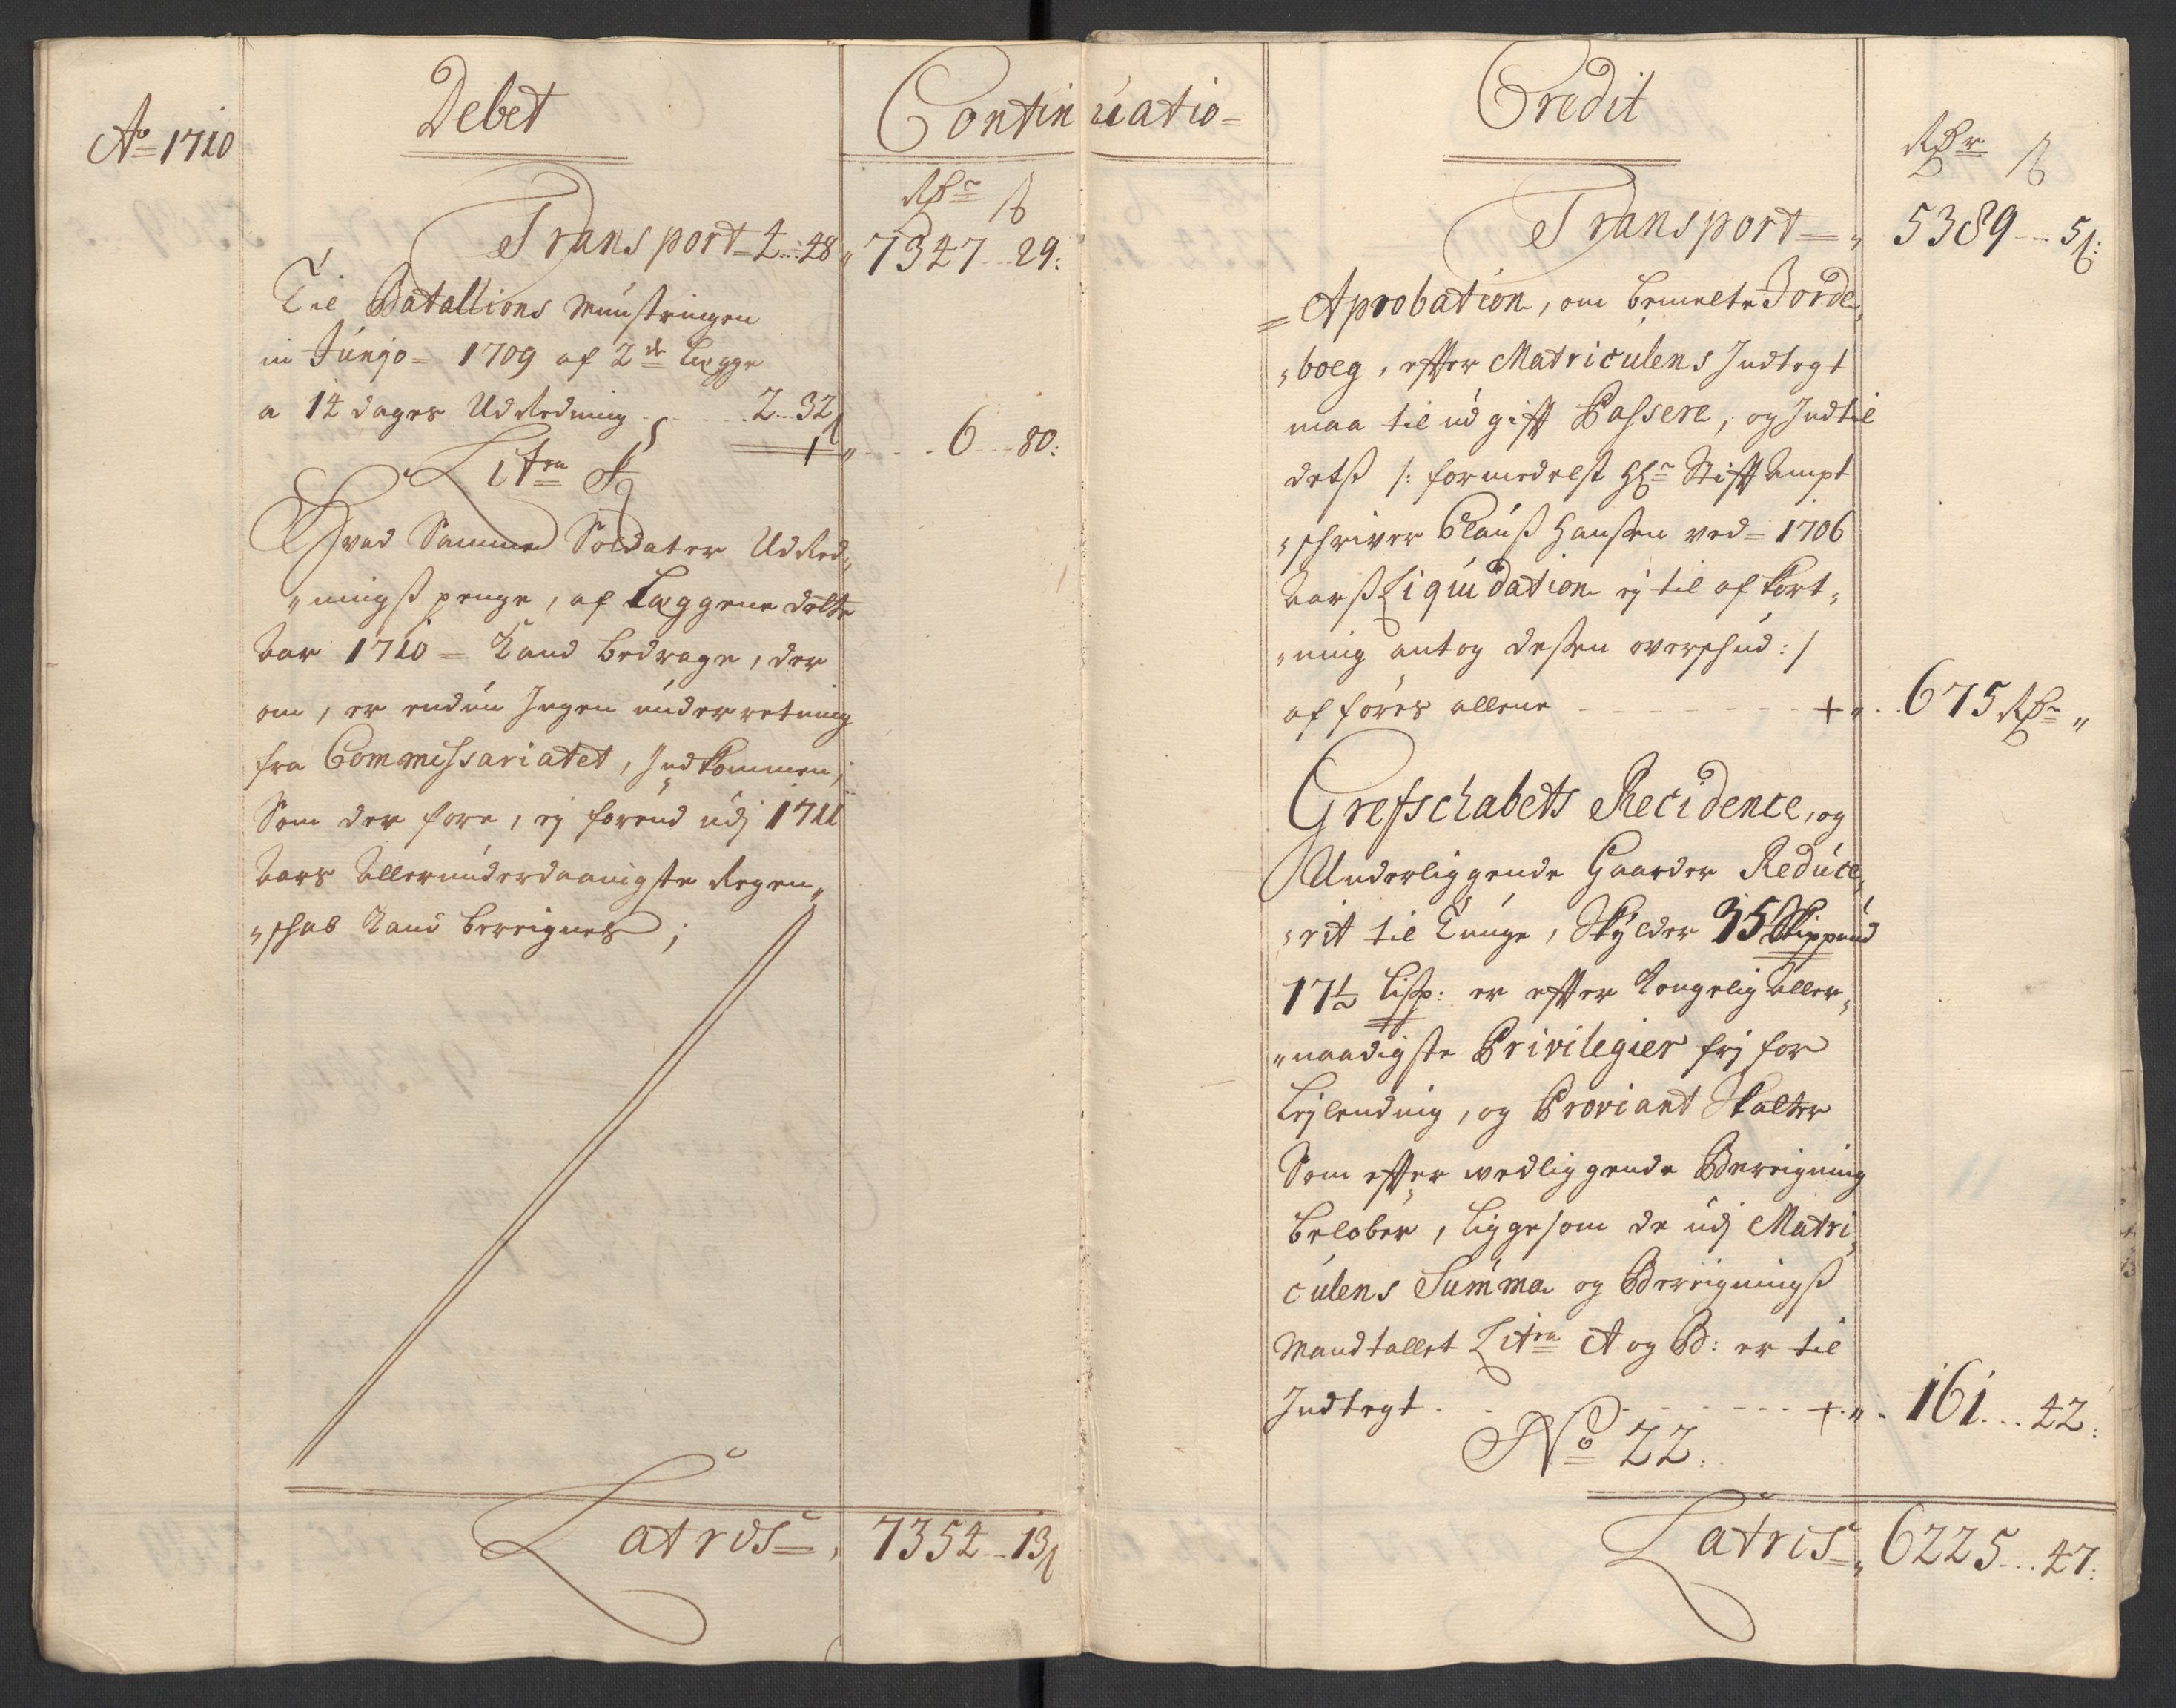 Ao 1710
Debet
Continuatio
Rdr ß
Transport 4..48 7347..29:
Til Batallions Munstringen
in Junjo 1709 af 2de Lægge
a 14 dages Udredning 2..32
+ 6..80:
Litra F
Hvad Samme Soldater Udred„
„ningsß penge, af Læggene dette
Aar 1710 Kand bedrage, der
om, er endnu Ingen underretning
fra Commissariatet, Indkommen,
Som der fore, ej forend udj 1711
Aars Allerunderdaanigste Regen„
„schab Kand bereignes;
Latris 7354..13ß
Credit
Rdr ß
Transport 5389..5ß:
Aprobation, om bemelte Jorde„
„boeg, effter Matriculens Indtegt
maa til udgifft Passere, og Indtil
detß /: formedelst Hr Stifft Ampt
„schriver Clauß Hanßen ved 1706
Aarß Liquidation ej til afkort„
„ning antog deßen overskud :/
afføres allene + 675 Rdr „
Grefschabets Recidence, og
Underliggende Gaarder Reduce„
„rit til Tunge, Skylder 35 Skippund
17½ Lisp: er effter Kongelig Aller„
„naadigste Privilegier frj for
Lejlending, og Proviant Skatter
Som effter vedliggende Bereigning
beløber, liggesom de udj Matri„
culens Summa og Bereignings
Mandtallet Litra A og B: er til
Indtegt + 161...42:
No 22.
Latris 6225...47: